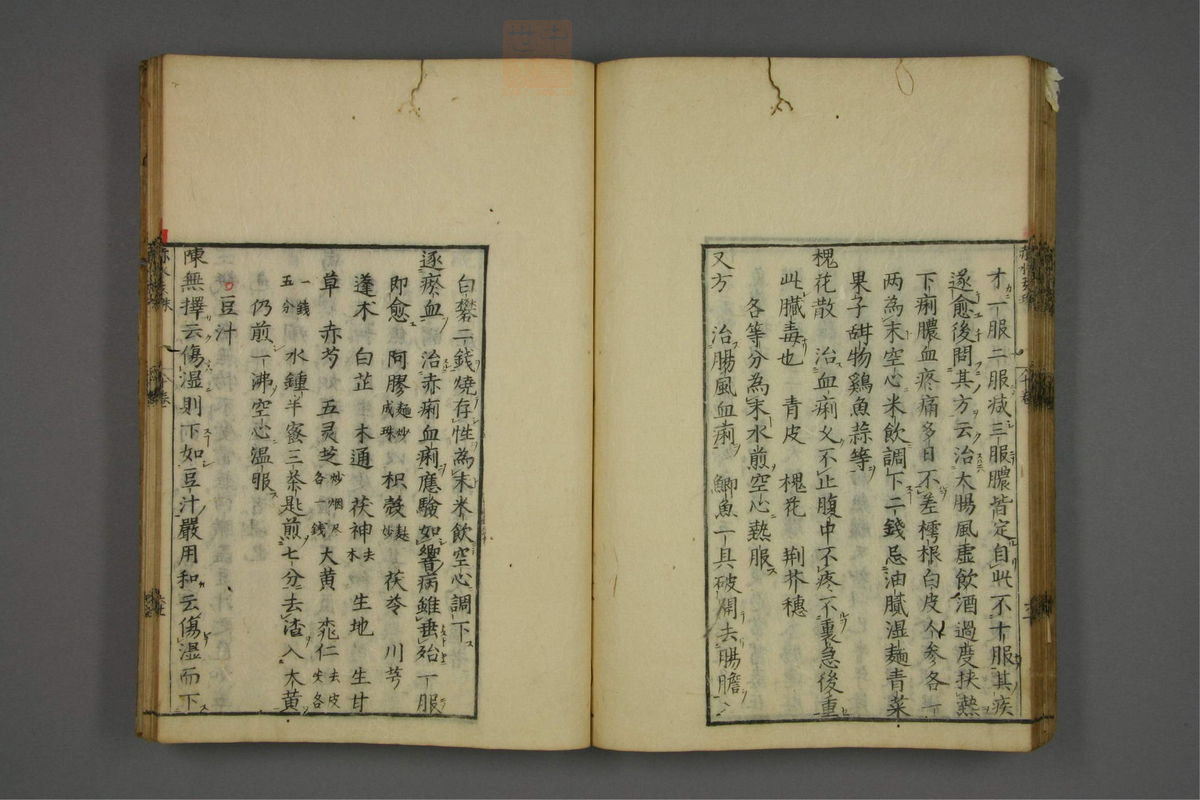 才一服二服减三服膿皆定自此不十服其疾
遂愈後問其方云治大腸風虚飲酒過度挟熱
下痢膿血疼痛多日不差樗根白皮人参各一
两為末空心米飲調下二錢忌油膩湿麺青菜
果子甜物鷄魚蒜等
槐花散 治血痢久不止腹中不疼不裏急後重
此臓毒也 青皮 槐花 荆芥穂
各等分為末水煎空心熱服
又方 治腸風血痢 鯽魚一具破開去腸膽
白礬二錢燒存性為末米飲空心調下
逐瘀血 治赤痢血痢應驗如響病雖垂殆一服
即愈 阿膠麺炒成珠 枳殻麸炒 茯苓 川芎
蓬木 白芷 木通 茯神去木 生地 生甘
草 赤芍 五灵芝炒烟尽各一錢 大黄 桃仁去皮尖各
一錢五分 水鍾半蜜三茶匙煎七分去渣入大黄
仍煎一沸空心温服
豆汁
陳無擇云傷湿則下如豆汁嚴用和云傷湿而下